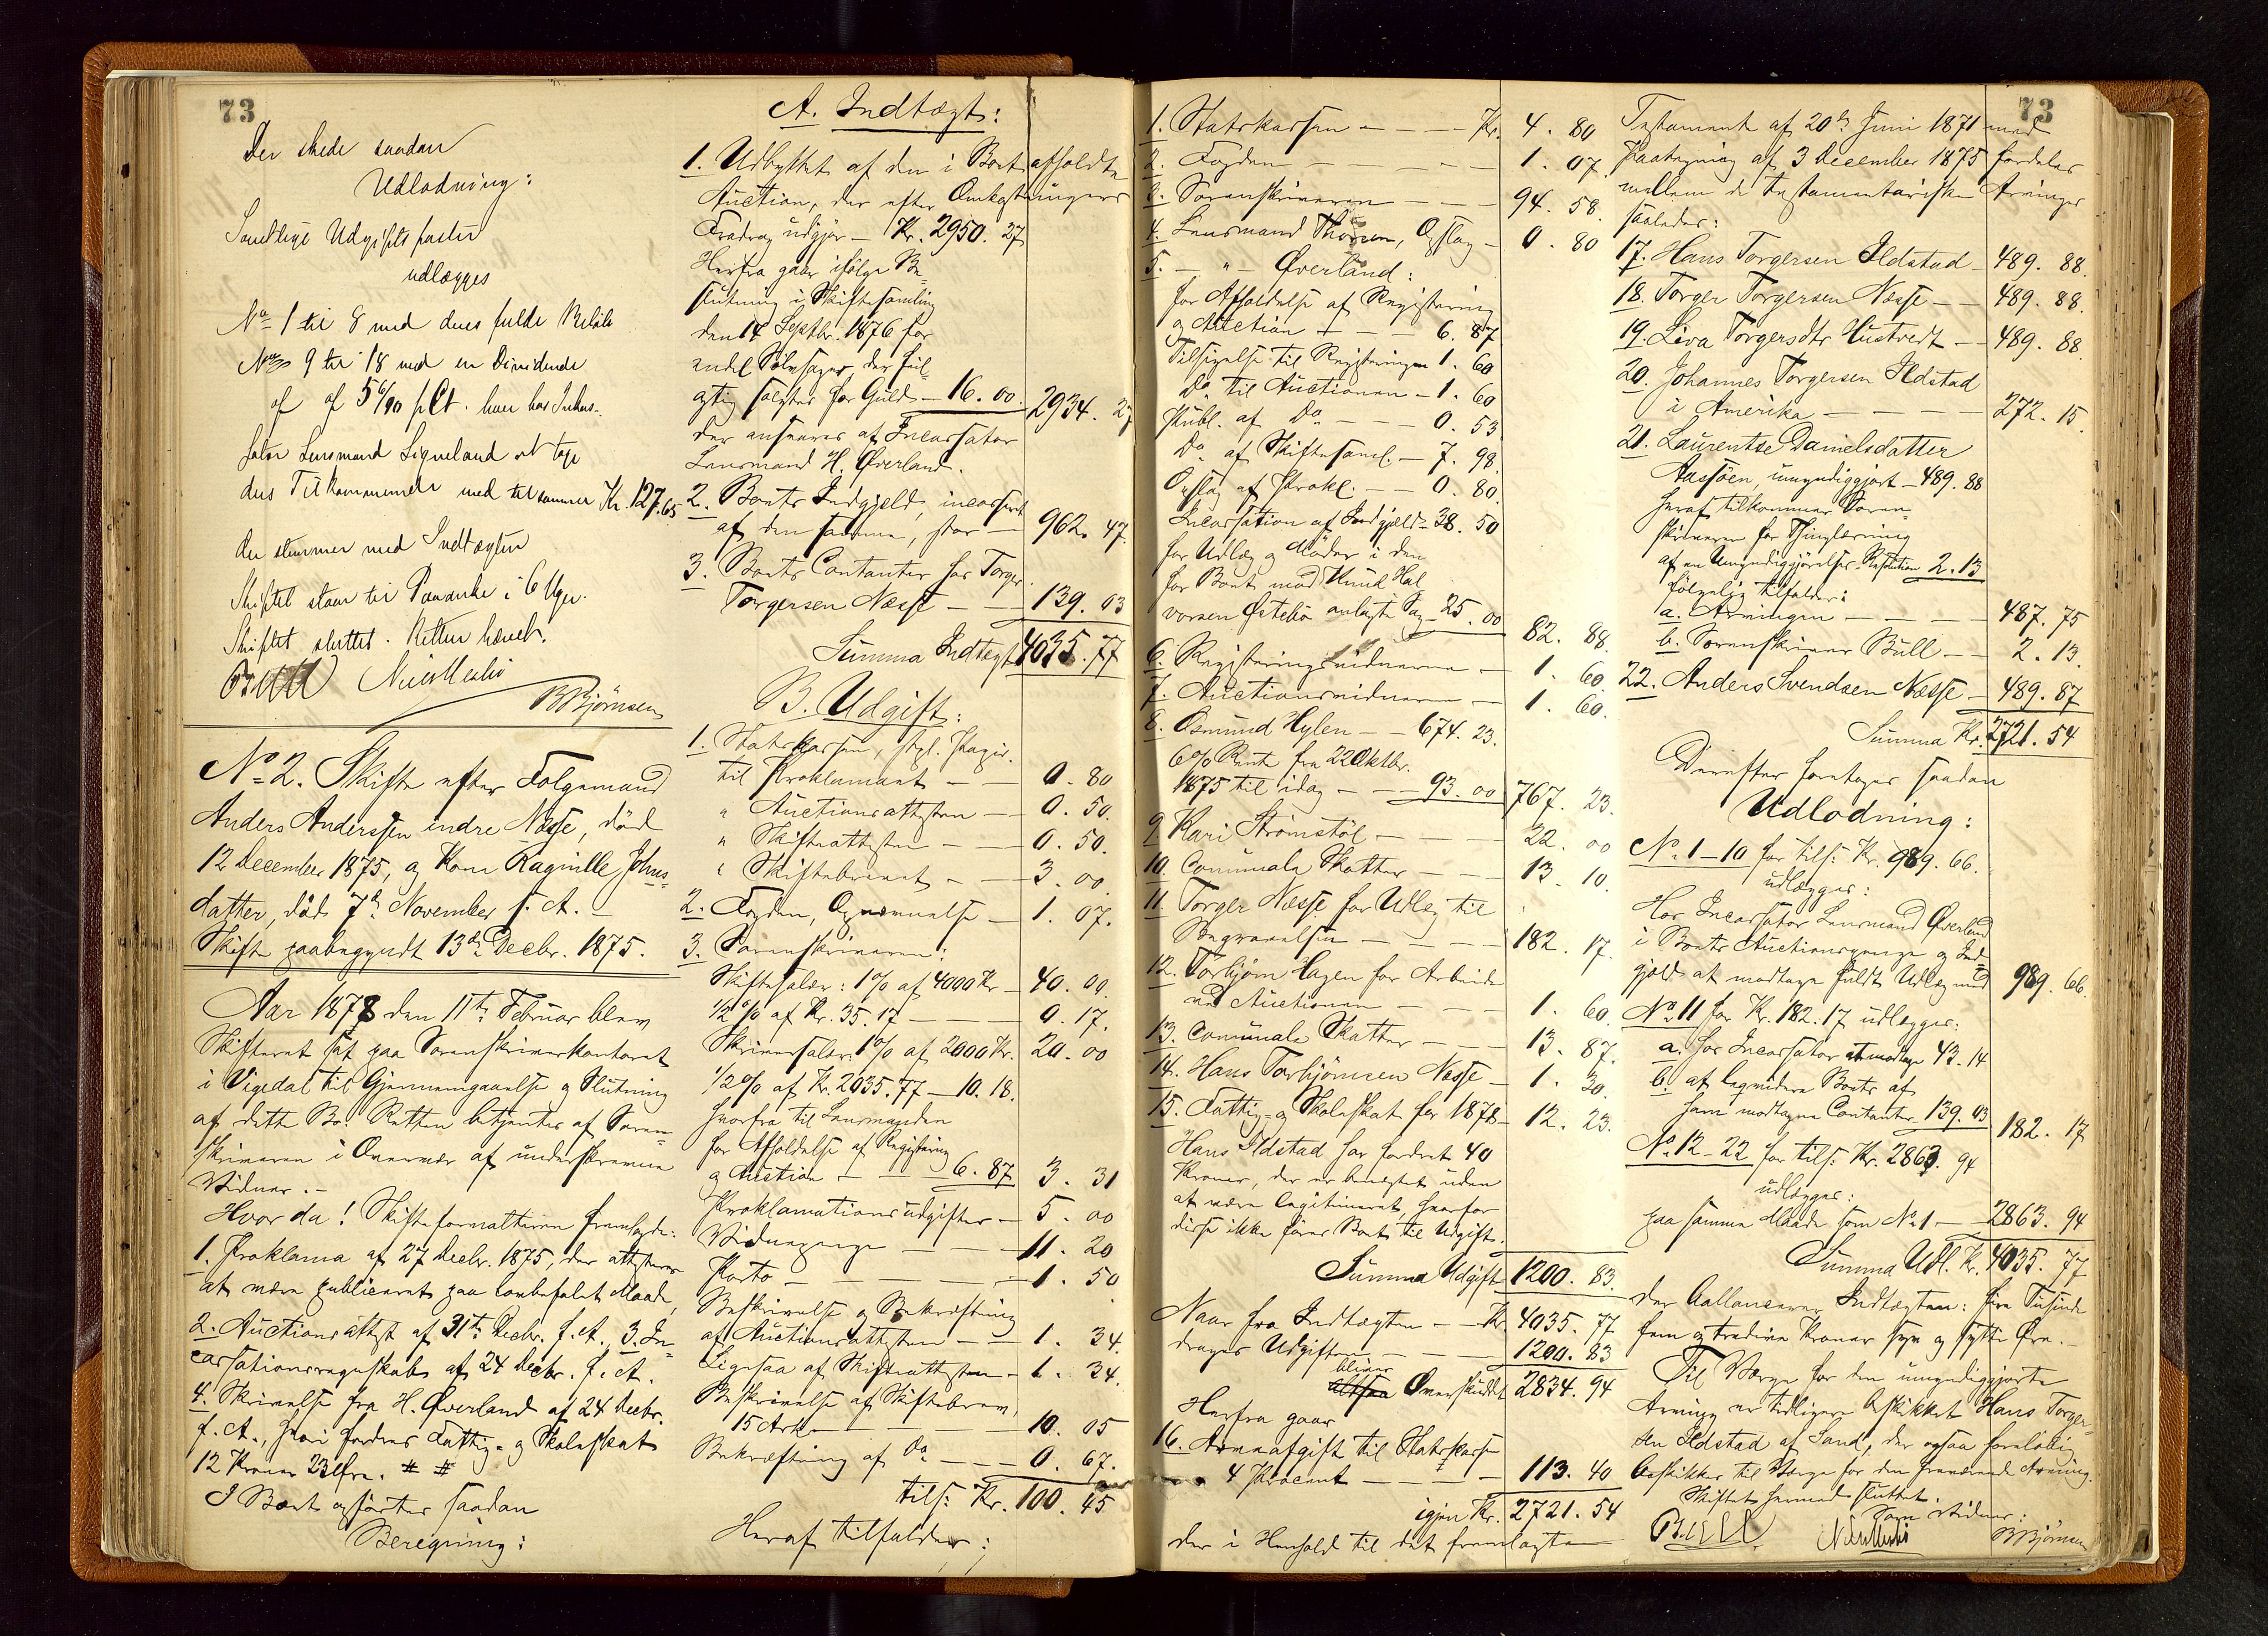 73
Der skede saadan
Udlodning:
Samtlige Udgiftsposter
udlægges
No 1 til 8 med deres fulde Beløb
No 9 til 18 med en Dividende
af 5 6/10 pCt. hver hos Inkas-
sator Lensmand Ligneland at tage
deres Tilkommende med tilsammen Kr. 127.65
der stemmer med Indtægten
Skiftet staar til Paaanke i 6 Uger.
Skiftet sluttet. Retten hævet.
BBjörnsen
No 2. Skifte efter Folgemand
Anders Anderssen indre Næsse, död
12 December 1875, og Kone Ragnille Johns-
datter, död 7de November s. A. -
Skifte paabegyndt 13de Decbr. 1875.
Aar 1878 den 11te Februar blev
Skifteret sat paa Sorenskriverkontoret
i Vigedal til Gjennemgaaelse og Slutning
af dette Bo. Retten betjentes af Soren-
skriveren i Overvær af underskrevne
Vidner. -
Hvor da! Skifteforvalteren fremlagde:
1. Proklama af 27 Decbr. 1875, der attesteres
at være publiceret paa lovbefalet Maade,
2. Auctionsattest af 31te Decbr. f. A., 3. In-
cassationsregnskab af 24 Decbr. f. A.
4. Skrivelse fra H. Øverland af 24 Decbr.
f. A., hvori fordres Fattig- og Skoleskat
12 Kroner 23 Øre. # #
I Boet opförtes saadan
Beregning:
A. Indtægt:
1. Udbyttet af den i Boet afholdte
Auction, der efter Omkostningers
Fradrag udgjör - Kr. 2950. 27
Herfra gaar ifölge Be-
slutning i Skiftesamling
den 14 Septbr. 1876 for
endel Sölvsager, der feil-
agtig solgtes for Guld - 16. 00. 2934. 27
der ansvares af Incassator
Lensmand H. Øverland.
2. Boets Indgjeld, incasseret
af den samme, stor - 962. 47.
3. Boets Contanter hos Torger
Torgersen Næsse - - 139. 03
Summa Indtægt 4035. 77
B. Udgift:
1. Statskassen, stpl. Papir.
til Proklamaet - - 0. 80
" Auctionsattesten - 0. 50.
" Skifteattesten - - 0. 50.
" Skiftebrevet - - 3. 00.
2. Fogden, Opnævnelse - 1. 07.
3. Sorenskriveren:
Skiftesalær: 1% af 4000 Kr - 40. 00.
1/2 % af Kr. 35. 77 - - 0. 17.
Skriversalær: 1% af 2000 Kr. 20. 00
1/2 % af Kr. 2035. 77 - 10. 18.
hvorfra til Lensmanden
for Afholdelse af Registering
og Auction - - 6. 87 3. 31
Proklamationsudgifter - 5. 00
Vidnepenge - - - 11. 20
Porto - - - - 1. 50
Beskrivelse og Bekræftning
af Auctionsattesten - - 1. 34.
Ligesaa af Skifteattesten - 1. 34.
Beskrivelse af Skiftebrev,
15 Ark - - - 10. 05
Bekræftning af Do - - - 0. 67.
tils: Kr. 100. 45
Heraf tilfalder:
73
1. Statskassen - - - - Kr. 4. 80
2. Fogden - - - - 1. 07.
3. Sorenskriveren - - - 94. 58.
4. Lensmand Thorsen, Opslag - 0. 80
5. - " - Øverland:
for Afholdelse af Registering
og Auction - - - 6. 87
Tilsigelse til Registeringen 1. 60
Do til Auctionen - 1. 60
Publ. af Do - - - 0. 53
Do af Skiftesaml. - 7. 98.
Opslag af Prokl. - - 0. 80.
Incassation af Indgjeld - 38. 50
for Udlæg og Möder i den
for Boet mod Knud Hal
vorsen Østebö anlagte Sag - 25. 00 82. 88.
6. Registeringsvidnerne - 1. 60.
7. Auctionsvidnerne - 1. 60.
8. Osmund Hylen - - 674. 23.
6% Rente fra 22 Oktbr.
1875 til idag - - - 93. 00 767. 23.
9. Kari Strömstöl - - - 22. 00
10. Communale Skatter - - 13. 10.
11. Torger Næsse for Udlæg til
Begravelsen - - - - 182. 17.
12. Torbjörn Hagen for Arbeide
ved Auctionen - - - 1. 60.
13. Communale Skatter - - 13. 87.
14. Hans Torbjörnsen Næsse - 1. 30.
15. Fattig- og Skoleskat for 1878 - 12. 23.
Hans Ildstad har fordret 40
Kroner, der er benegtet uden
at være legitimeret, hvorfor
disse ikke föres Boet til Udgift.
Summa Udgift 1200. 83.
Naar fra Indtægten - - Kr 4035. 77
drages Udgiften - - - 1200. 83
bliver
Overskuddet 2834. 94
Herfra gaar
16. Arveafgift til Statskassen
4 Procent - - - - 113. 40
igjen Kr. 2721. 54
der i Henhold til det fremlagte
Testamente af 20de Juni 1871 med
Paategning af 3 December 1875 fordeles
mellem de testamentariske Arvinger
saaledes:
17. Hans Torgersen Ildstad - 489. 88.
18. Torger Torgersen Næsse - - 489. 88.
19. Liva Torgersdtr Hustvedt - - 489. 88.
20. Johannes Torgersen Ildstad
i Amerika - - - - 272. 15.
21. Laurentse Danielsdatter
Aassöen, umyndiggjort - 489. 88
heraf tilkommer Soren-
skriveren for Thinglæsning
af en Umyndiggjörelses-Resolution 2. 13
fölgelig tilfalder:
a. Arvingen - - - - 487. 75
b. Sorenskriver Bull - - 2. 13.
22. Anders Svendsen Næsse - 489. 87
Summa Kr. 2721. 54
Derefter foretoges saadan
Udlodning:
No 1-10 for tils: Kr. 989. 66.
udlægges:
Hos Incassator Lensmand Øverland
i Boets Auctionspenge og Ind-
gjeld at modtage fuldt Udlæg med 989. 66.
No 11 for Kr. 182. 17 udlægges:
a. hos Incassator at modtage 43. 14
b. at liqvidere Boets af
ham modtagne Contanter 139. 03 182. 17
No 12-22 for tils: Kr. 2863. 94
udlægges:
paa samme Maade som No 1 - 2863. 94
Summa Udl. Kr. 4035. 77
der ballancerer Indtægten: fire Tusinde
fem og tredive Kroner syv og sytti Øre. -
Til Værge for den umyndiggjorte
Arving er tidligere beskikket Hans Torger-
sen Ildstad af Sand, der ogsaa forelöbig
beskikkes til Værge for den fraværende Arving.
Skiftet hermed sluttet.
Som Vidner:
Bull
BBjörnsen